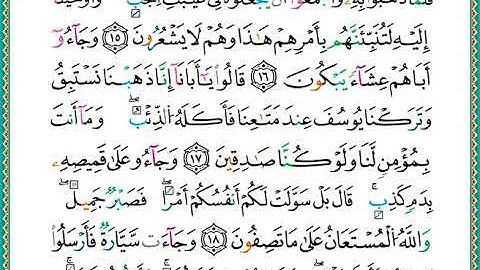 إِلَيْهِ لَتُنَبِّئَنَّهُم بِأَمْرِهِمْ هَٰذَا وَهُمْ لَا يَشْعُرُونَ ١٥ وَجَآءُو
أَبَاهُمْ عِشَآءً يَبْكُونَ ١٦ قَالُوا۟ يَٰٓأَبَانَآ إِنَّا ذَهَبْنَا نَسْتَبِقُ
وَتَرَكْنَا يُوسُفَ عِندَ مَتَٰعِنَا فَأَكَلَهُ ٱلذِّئْبُ ۖ وَمَآ أَنتَ
بِمُؤْمِنٍ لَّنَا وَلَوْ كُنَّا صَٰدِقِينَ ١٧ وَجَآءُو عَلَىٰ قَمِيصِهِۦ
بِدَمٍ كَذِبٍ ۚ قَالَ بَلْ سَوَّلَتْ لَكُمْ أَنفُسُكُمْ أَمْرًا ۖ فَصَبْرٌ جَمِيلٌ ۖ
وَٱللَّهُ ٱلْمُسْتَعَانُ عَلَىٰ مَا تَصِفُونَ ١٨ وَجَآءَتْ سَيَّارَةٌ فَأَرْسَلُوا۟